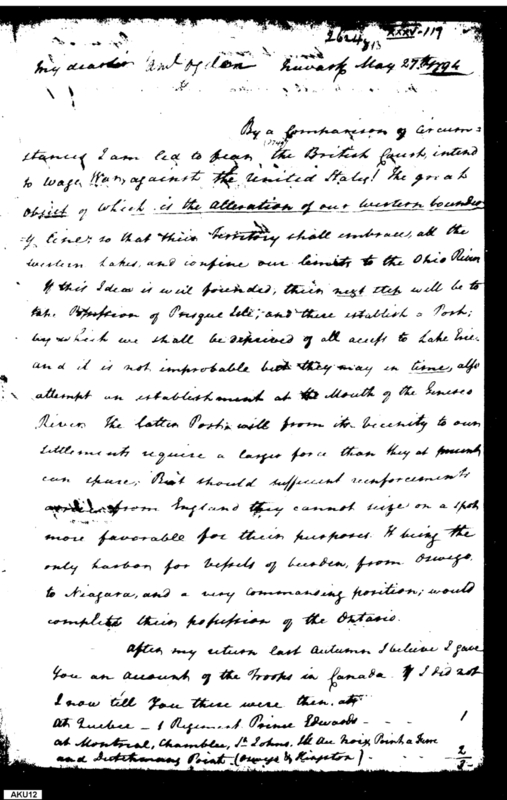 2624 XXXV-119
813
My dear Newark May 27th 1794
By a Comparison of Circum=
stances I am led to fear, the British Court, intend
to wage War, against the United States! The great
object of which is the alteration of our western bounda
-y line, so that their Territory shall embrace, all the
western Lakes, and confine our limits to the Ohio River
If this Idea is well founded, their next step will be to
take Possession of Presque Isle; and there establish a Post;
by which we shall be deprived of all access to Lake Erie
and it is not improbable but they may in time, also
attempt an establishment at the Mouth of the Genesee
River. The latter Port will from its vecinity to our
settlements require a larger force than they at present
can spare; But should sufficient reinforcements
from England they cannot seize on a spot
more favorable for their purposes. It being the
only harbor for vessels of burden, from Oswego
to Niagara, and a very commanding position; would
complete their possession of the Ontario.
After my return last Autumn I believe I gave
You an account of the Troops in Canada. If I did not
I now tell You there were then
At Quebec - 1 Regiment Prince Edwards - - - 1
at Montreal, Chamblee, St. Johns, Isle Au Noix, Point a Fere
and Dutchmans Point (Oswego & Kingston) - 2
3
AKU12